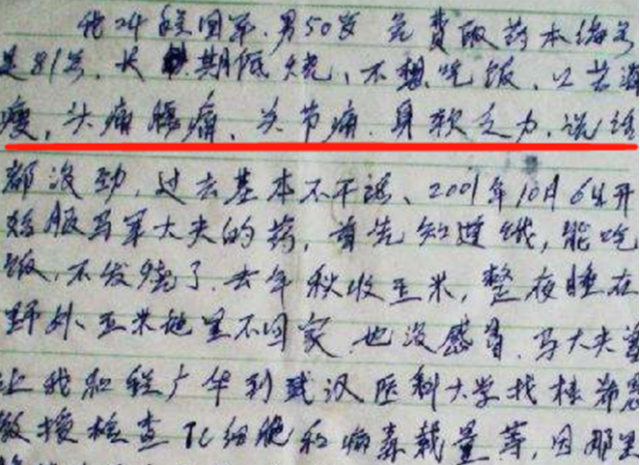 24 程国富，男50岁 免费取药本编号
是81号，长期低烧、不想吃饭、口苦消
瘦，头痛腰痛、关节痛、身软乏力，说话
都没劲，过去基本不干活、2001年10月6日开
始服马军大夫的药，首先知道饿，能吃
饭，不发烧了．去年秋收玉米，整夜睡在
野外、玉米地里不回家，也没感冒．马大夫
让我和程广华到武汉医科大学找桂希恩
教授检查TC细胞和病毒载量等，因那里